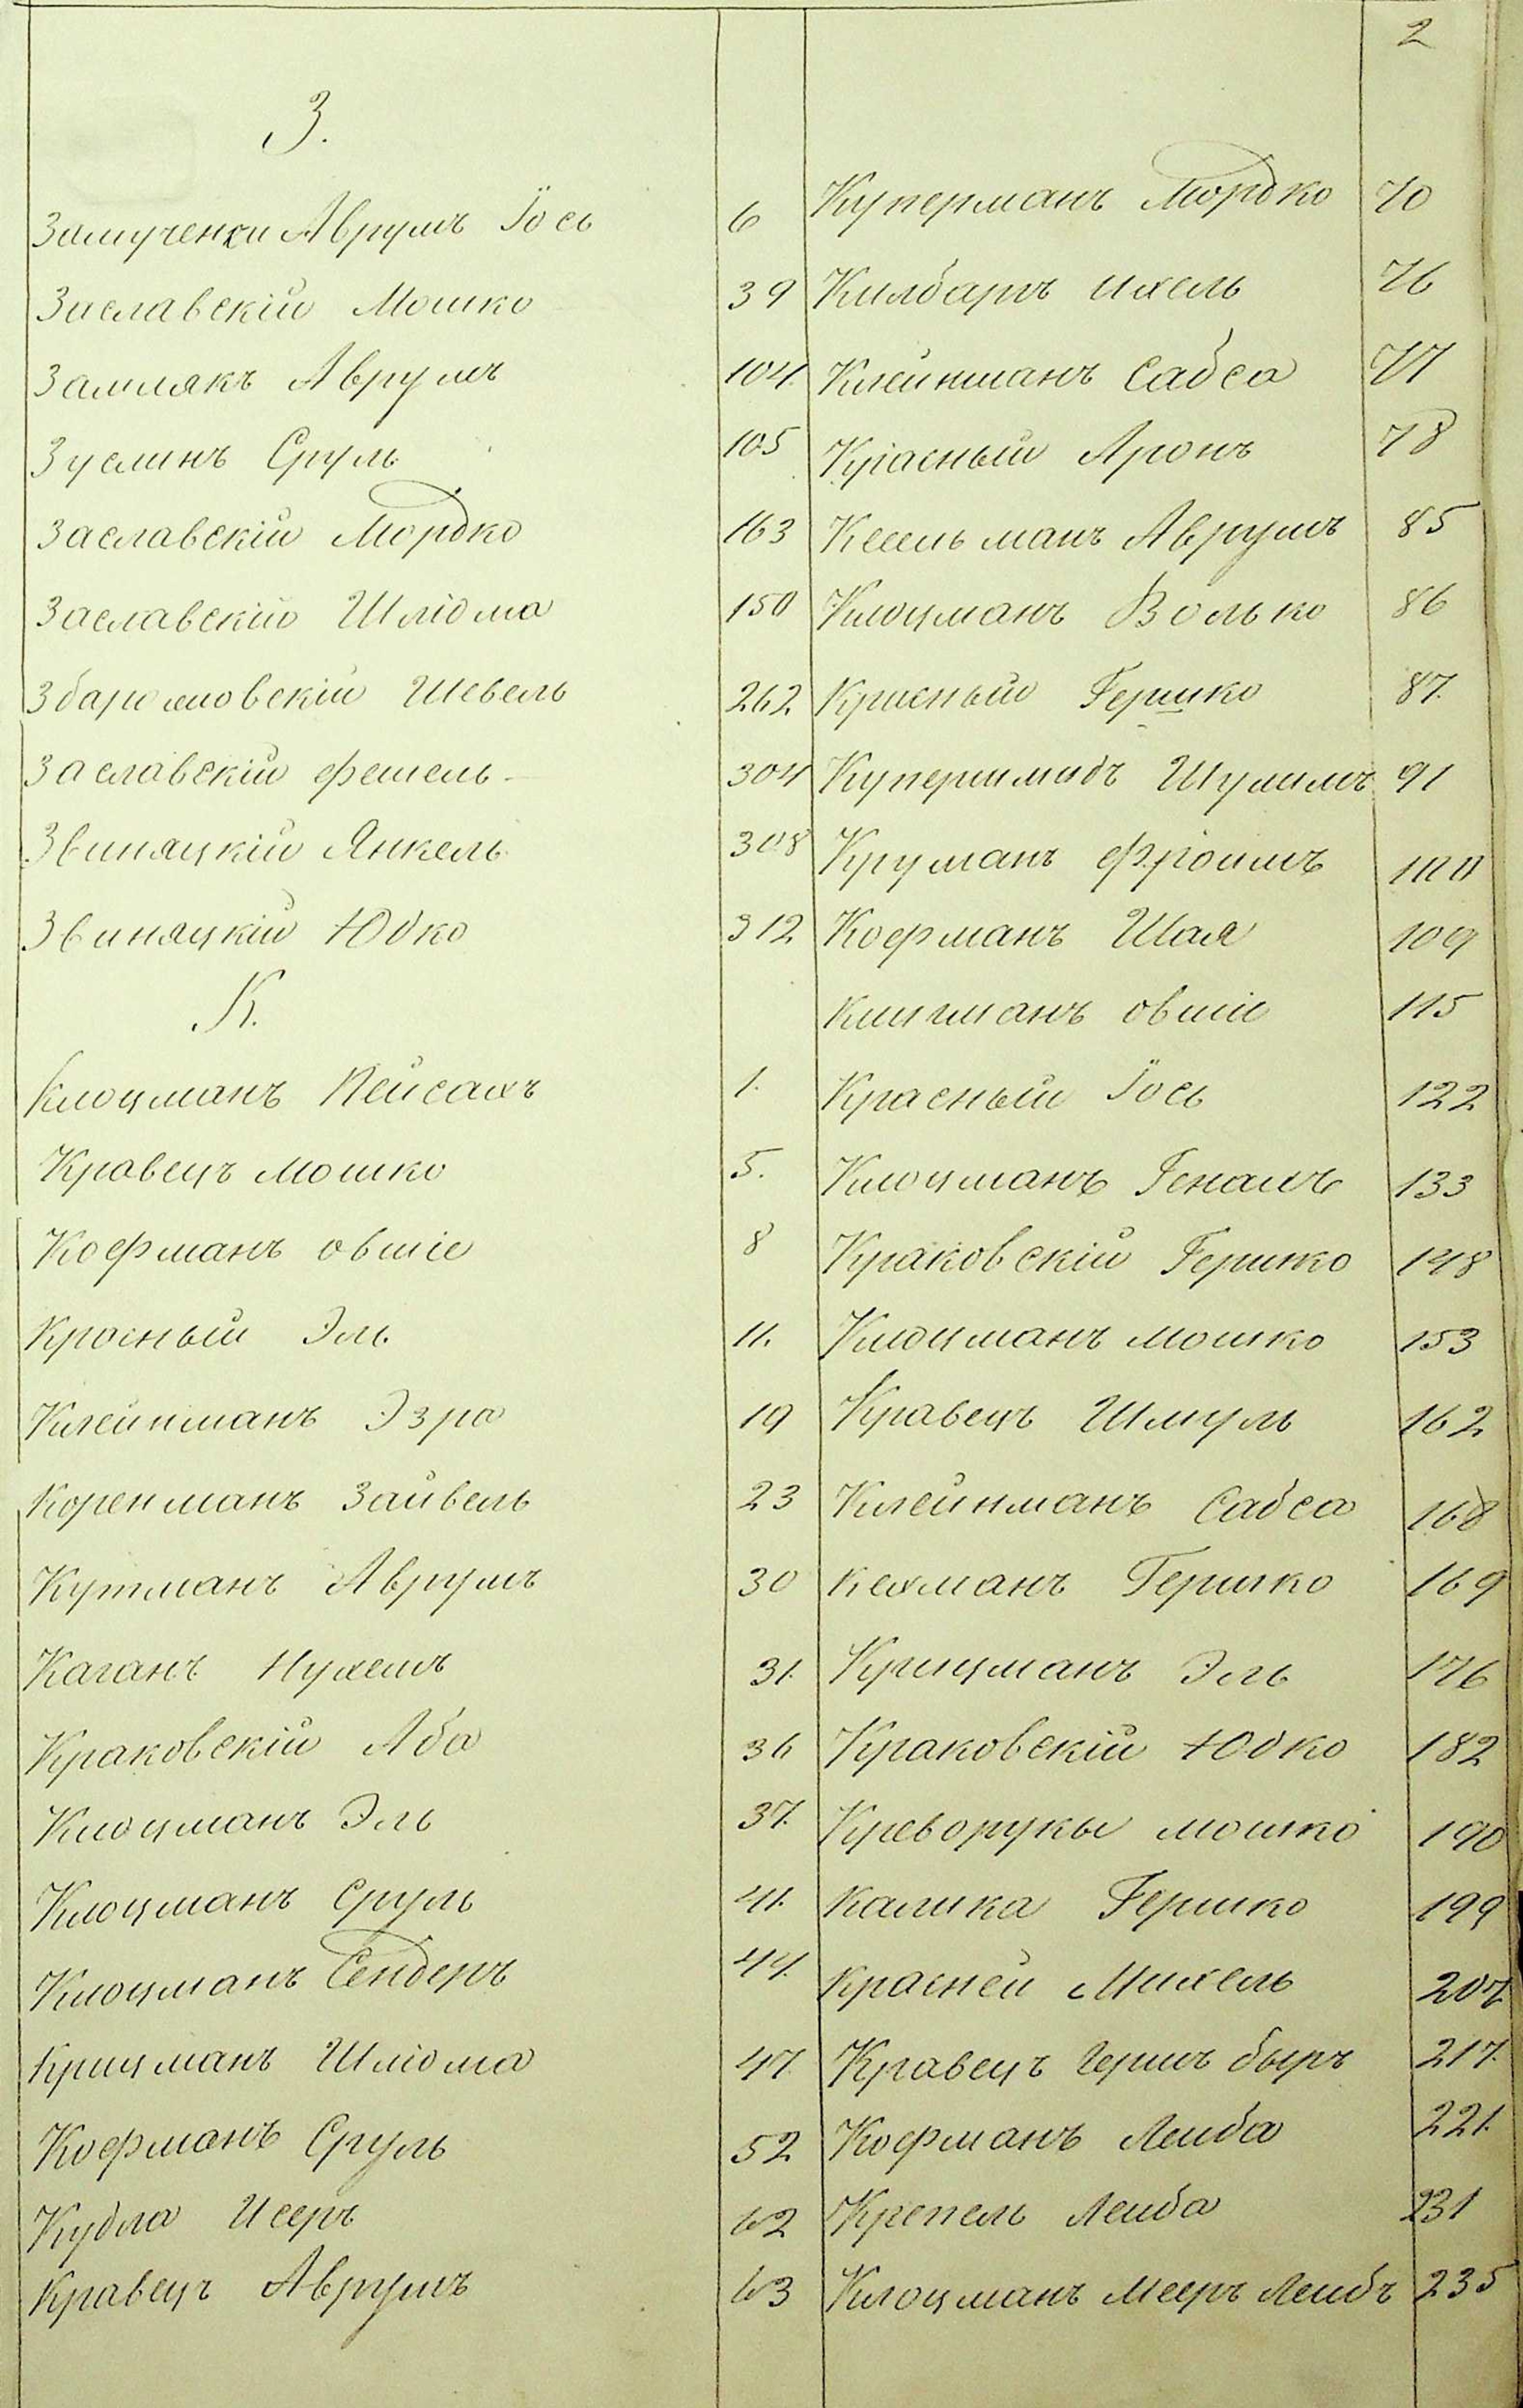 2
З.
Замученки Аврумъ Іось 6
Заславскій Мошко 39
Замлякъ Аврумъ 104.
Зуслинъ Сруль 105
Заславскій Мордко 163
Заславскій Шліома 150
Шевель 262
Заславскій Фешель 304
Звиняцкій Янкель 308
Звиняцкій Юдко 312
К.
Клоцманъ Пейсахъ 1.
Кравецъ Мошко 5.
Кофманъ Овшіе 8
Красный Эль 11.
Клейнманъ Эзра 19
Коренманъ Зайвель 23
Кутманъ Аврумъ 30
Каганъ Нухемъ 31.
Краковскій Аба 36
Клоцманъ Эль 37.
Клоцманъ Сруль 41.
Клоцманъ Сендеръ 44.
Крицманъ Шліома 47.
Кофманъ Сруль 52
Кубла Исеръ 62
Кравецъ Аврумъ 63
Куперманъ Мордко 70
Килбаръ Ихель 76
Клейнманъ Сабса 77
Красный Аронъ 78
Кесельманъ Аврумъ 85
Клоцманъ Волько 86
Красный Гершко 87.
Купершмидъ Шулимъ 91
Круманъ Фроимъ 100
Кофманъ Шая 109
Овшіе 115
Красный Іось 122
Клоцманъ Генахъ 133
Краковскій Гершко 148
Клоцманъ Мошко 153
Кравецъ Шмуль 162
Клейнманъ Сабса 168
Кехманъ Гершко 169
Крицманъ Эль 176
Краковскій Юдко 182
Креворукы Мошко 190
Калика Гершко 199
Красней Михель 207
Кравецъ Гершъ Быръ 217.
Кофманъ Леиба 221.
Крепель Леиба 231
Клоцманъ Мееръ Леибъ 235